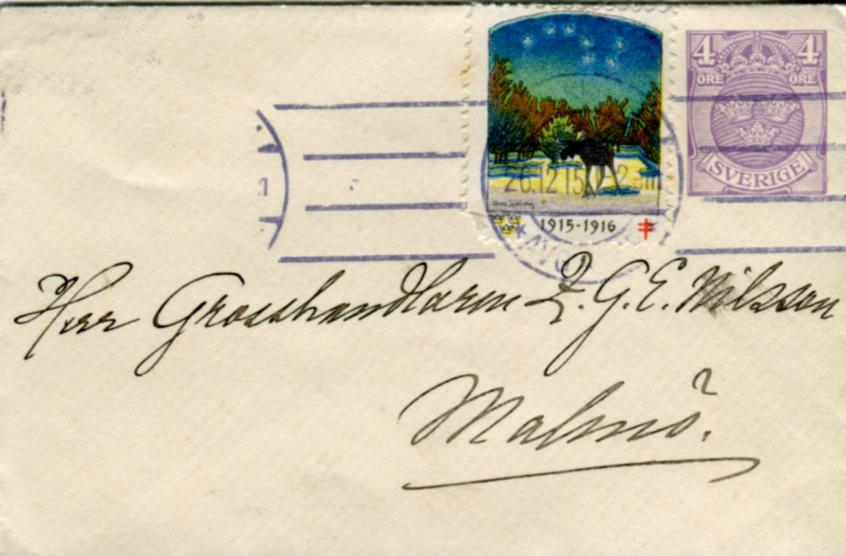 4 4
ÖRE ÖRE
SVERIGE
26.12.15.12-2 em
1915-1916
AVG
Herr Grosshandlaren L. G. E. Nilsson
Malmö.